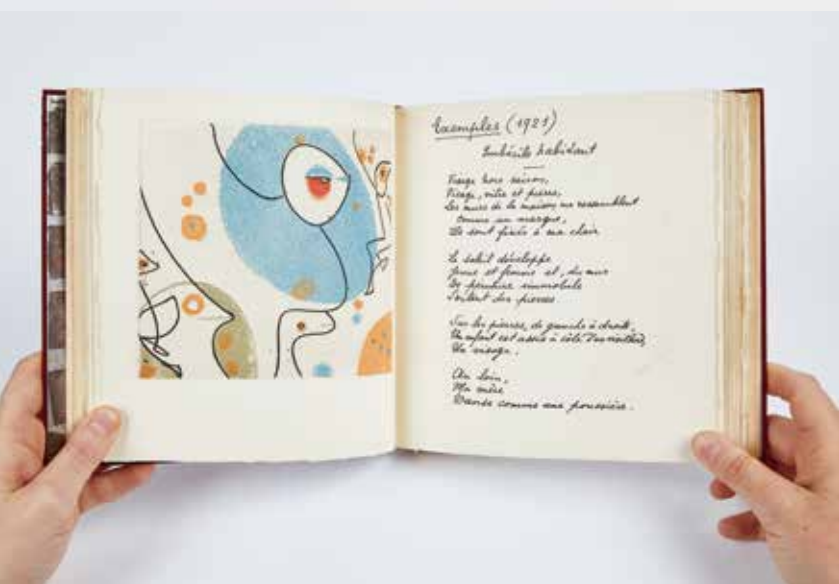 Exemples (1921)
Imbécile habitant
saison,
et pierre,
Les murs de la maison me ressemblent
comme un masque,
sont fixés à ma chair
Le soleil développe
et, du mur
peinture immobile
Sortent des pierres
Sur les pierres, de gauche à droite,
Un enfant est assis à côté
Un visage.
Au loin,
Ma mère
Danse comme une poussière.